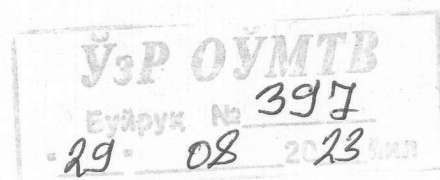 ЎзР ОЎМТВ
Буйруқ № 397
"29" 08 2023 йил